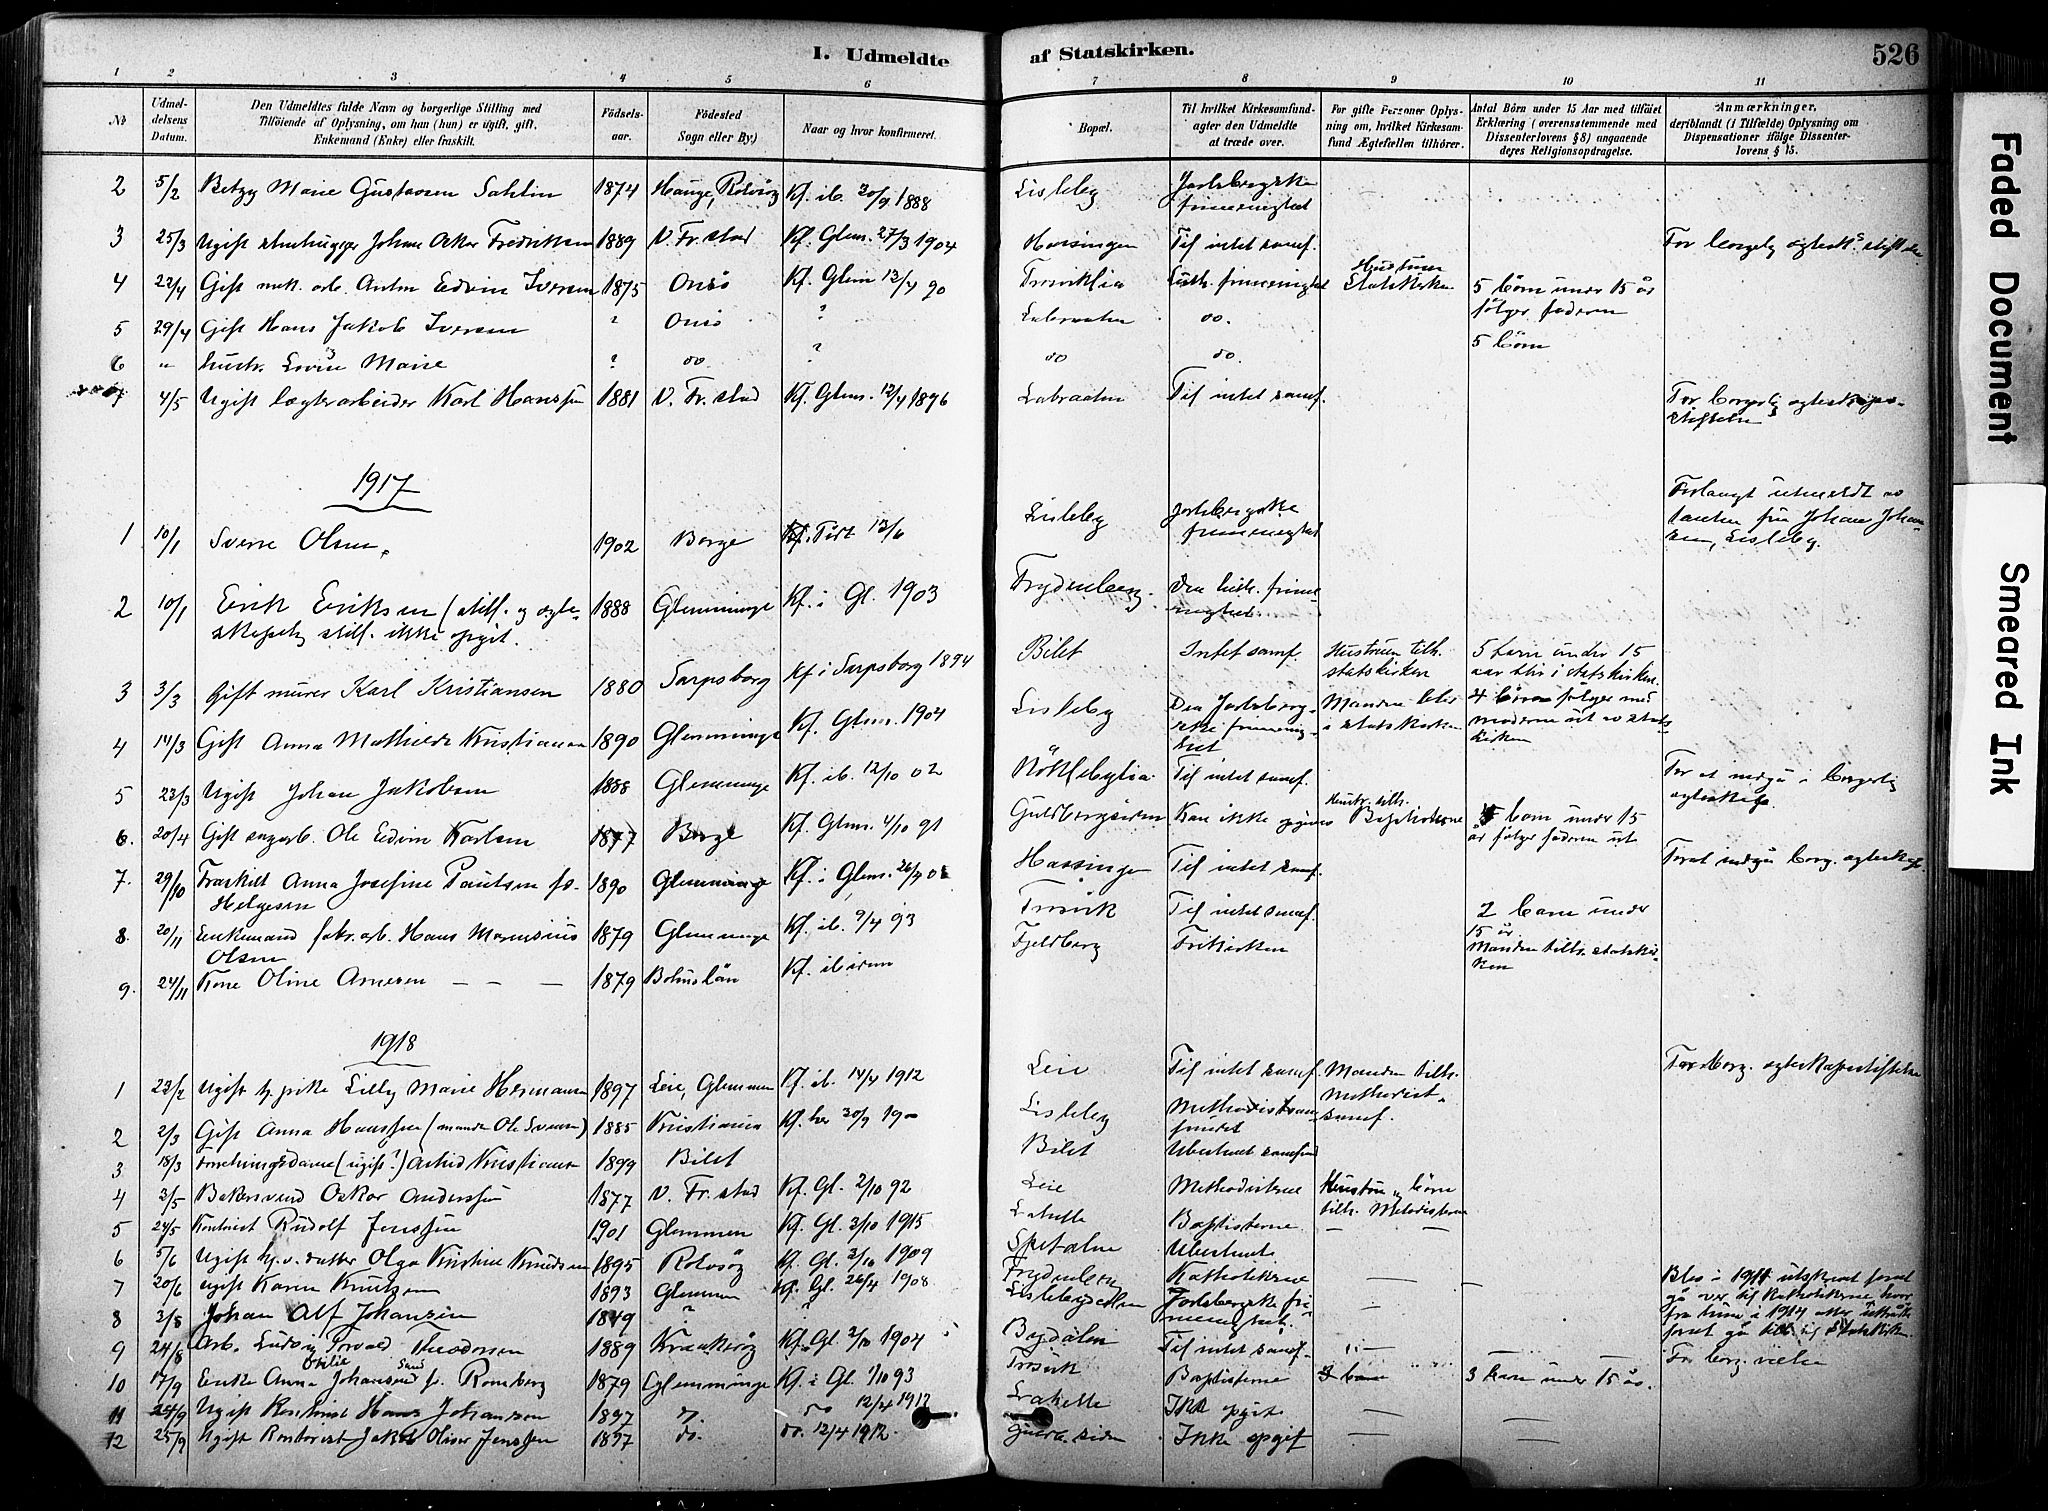 I. Udmeldte af Statskirken. 526
1 2 3 4 5 6 7 8 9 10 11
No
Udmel-
delsens
Datum.
Den Udmeldtes fulde Navn og borgerlige Stilling med
Tilföiende af Oplysning, om han (hun) er ugift, gift,
Enkemand (Enke) eller fraskilt.
Födsels-
aar.
Födested
Sogn eller By.)
Naar og hvor konfirmeret.
Bopæl.
Til hvilket Kirkesamfund-
agter den Udmeldte
at træde over.
For gifte Personer Oplys-
ning om, hvilket Kirkesam-
fund Ægtefællen tilhörer.
Antal Börn under 15 Aar med tilföiet
Erklæring (overensstemmende med
Dissenterlovens § 8) angaaende
deres Religionsopdragelse.
Anmærkninger,
deriblandt (i Tilfælde) Oplysning om
Dispensationer ifölge Dissenter-
lovens § 15.
2 5/2 Betzy Marie Gustavsen Sahlin 1874 Hauge, Rolvsöy Kf. ib. 30/9 1888 Lisleby Jarlsbergske
frimenighed
3 25/3 Ugift stenhugger Johan Oskar Fredriksen 1889 V. Fr.stad Kf. Glem. 27/3 1904 Til intet samf.
4 22/4 Gift mek. arb. Anton Edvin Iversen 1875 Onsö Kf. Glem 13/4 90 Trosviklia Luth. frimenighet Hustruen
Statskirken 5 börn under 15 år
fölger faderen
5 29/4 Gift Hans Jakob Iversen ? Onsö ? Labraaten do. 5 börn
6 " hustr. Lovise Marie ? do ? do do.
7 4/5 Ugift lægterarbeider Karl Hanssen 1881 V. Fr.stad Kf. Glem. 12/4 1896 Labraaten Til intet samf. For borgerlig egteskaps-
stiftelse
1917
1 10/1 Sverre Olsen. 1902 Borge Födt 13/6 Lisleby Jarlsbergske
frimenighed Forlangt utmeldt av
tanten fru Johan Johan-
sen, Lisleby.
2 10/1 Erik Eriksen (still. og egte-
skapelig still. ikke opgit. 1888 Glemminge Kf. i Gl. 1903 Frydenberg. Den luth. frime-
nighed.
3 3/3 Gift murer Karl Kristiansen 1880 Sarpsborg Kf i Sarpsborg 1894 Bilet Intet samf. Hustruen tilh.
statskirken 5 barn under 15
aar blir i statskirken.
4 14/3 Gift Anna Mathilde Kristiansen 1890 Glemminge Kf. Glem. 1904 Lisleby Den Jarlsberg-
ske frimenig-
het Manden blir
i statskirken 4 börn fölger med
moderen ut av stats-
kirken
5 23/3 Ugift Johan Jakobsen 1888 Glemminge Kf. ib. 12/10 02 Til intet samf. For at indgå i borgerlig
egteskap.
6. 20/4 Gift sagarb. Ole Edvin Karlsen 1877 Borge Kf. Glem. 4/10 91 Kan ikke opgives Hustr. tilh.
Baptisterne barn under 15
år fölger faderen ut
7. 29/10 Fraskilt Anna Josefine Paulsen f.
Helgesen 1890 Glemminge Kf. i Glem. 26/4 Hassingen Til intet samf. For at indgå borg. egteskap.
8. 20/11 Enkemand fabr. arb. Hans Marensius
Olsen 1879 Glemminge Kf. ib. 9/4 93 Trosvik Til intet samf. 2 barn under
15 år.
9. 24/11 Kone Oline Arnesen — — — 1879 Bohuslän Kf. ibidem Fjeldberg Frikirken Manden tilh. statskir-
ken
1918
1 22/2 Ugift tj. pike Lilly Marie Hermansen 1897 Leie, Glemmen Kf. ib. 14/4 1912 Leie Til intet samf. For borg. egteskapsstiftelse
2 2/3 Gift Anna Hanssen (manden Ole Svensen) 1885 Kristiania Kf. her 30/9 Lisleby Methodistsam-
fundet Manden tilh.
Methodist-
samf.
3 18/3 Forretningsdame (ugift?) Astrid Kristiansen 1899 Bilet Bilet Ubestemt samfund
4 3/5 Bakersvend Oskar Anderssen 1877 V. Fr.stad Kf. Gl. 2/10 92 Leie Methodisterne Hustru og börn
tilh. Metodisterne
5 24/5 Kontorist Rudolf Jenssen 1901 Glemmen Kf. Gl. 3/10 1915 Lakelle Baptisterne — —
6 5/6 Ugift hj.v. datter Olga Kristine Knudsen 1895 Rolvsöy Kf. Gl. 3/10 1909 Ubestemt
7 20/6 ugift Karen Knutzen 1893 Glemmen Kf. Gl. 26/4 1908 Frydenberg Katholikerne — — Blev i 1911 utskrevet foråt
gå over til katholikerne
8 3/8 Johan Alf Johansen 1849 ? Jarlsbergske fri-
menighet. —
9 24/8 Arb. Ludvig Torvald Theodorsen 1889 Kraakeröy Kf. Gl. 2/10 1904 Bydalen Til intet samf. — — — For borg. vielse
10 17/9 Enke Anna Otilie Johansen f. Romberg 1879 Glemminge Kf. i Gl. 1/10 93 Trosvik Baptisterne 3 barn 3 barn under 15 år.
11 25/9 Ugift Kontorist Hans Johansen 1897 do. do 12/4 1912 Lakelle Ikke opgit — —
12 25/9 Ugift Kontorist Jakob Oliver Jenssen 1897 do. do. 12/4 1912. Ikke opgit — —
Faded Document
Smeared Ink